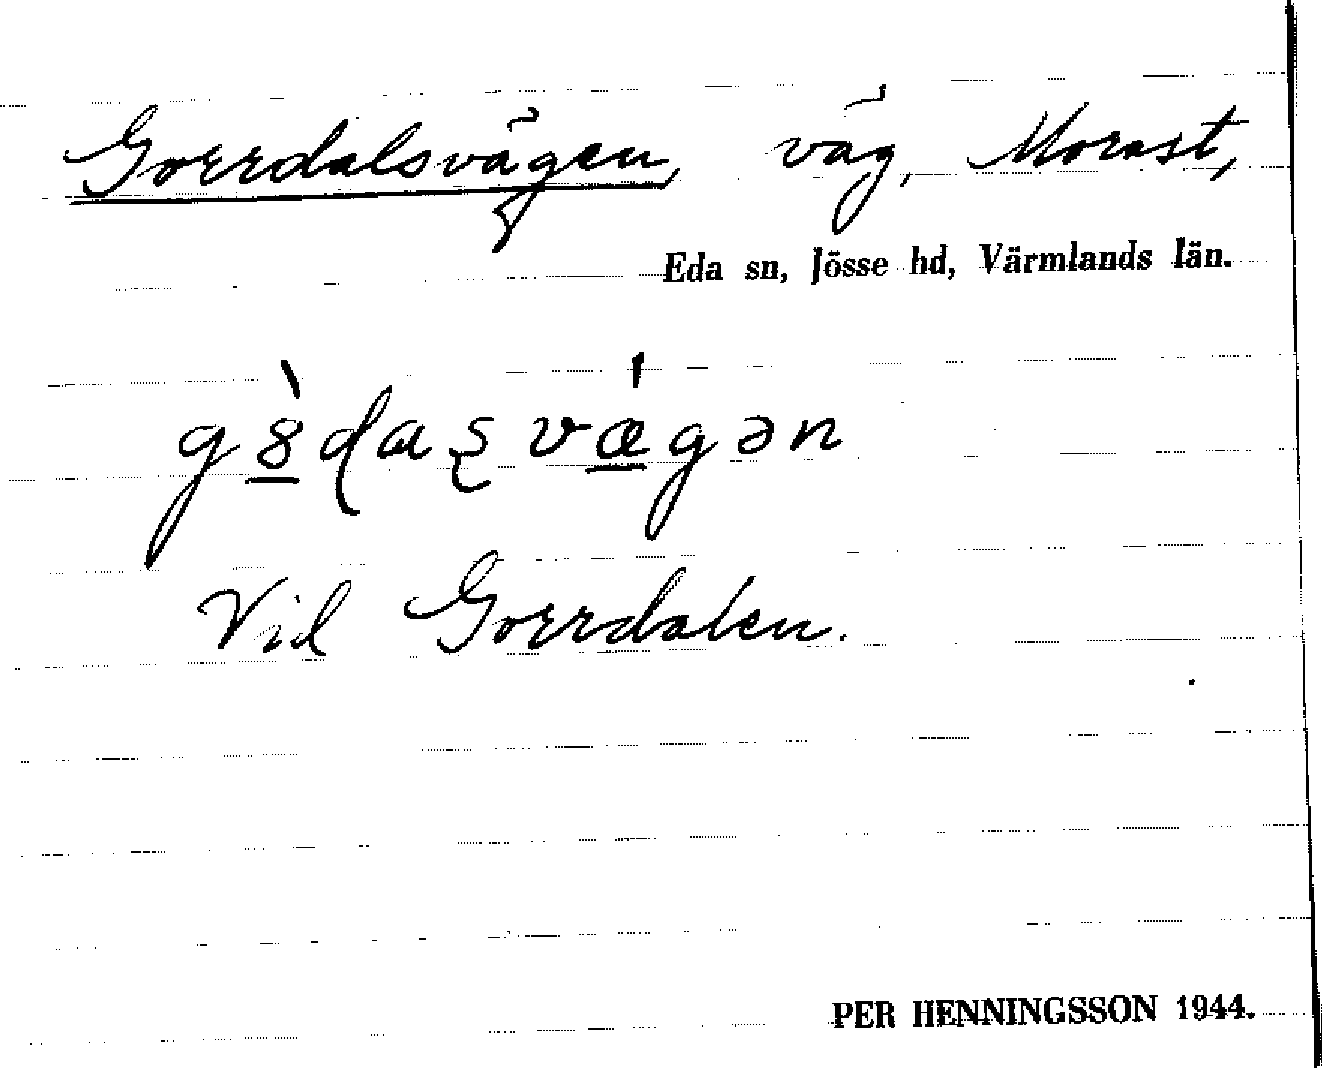 Gorrdalsvägen, väg, Morast,
Eda sn, Jösse hd, Värmlands län.
g8̱̀ɖaʂvǽ̱gən
Vid Gorrdalen.
PER HENNINGSSON 1944.